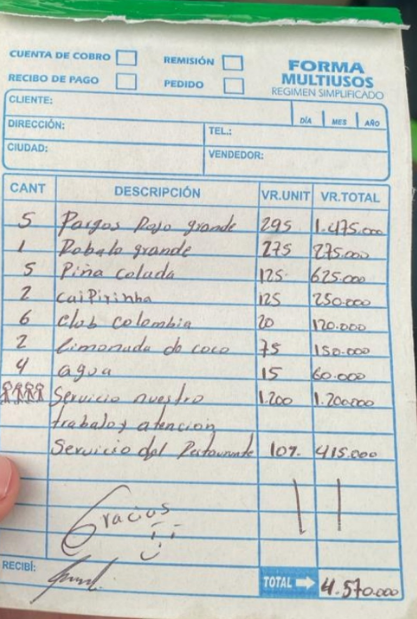 CUENTA DE COBRO REMISIÓN FORMA
RECIBO DE PAGO PEDIDO MULTIUSOS
REGIMEN SIMPLIFICADO
CLIENTE:
DÍA MES AÑO
DIRECCIÓN: TEL.:
CIUDAD: VENDEDOR:
CANT DESCRIPCIÓN VR.UNIT VR.TOTAL
5 Pargos Rojo grande 295 1.475.000
1 Robalo grande 275 275.000
5 Piña colada 125 625.000
2 caiPirinha 125 250.000
6 Club Colombia 20 120.000
2 Limonada de coco 75 150.000
4 agua 15 60.000
Servicio nuestro 1.200 1.200.000
trabajo y atencion
Servicio del Restaurante 10% 415.000
Gracias
RECIBÍ:
TOTAL 4.570.000